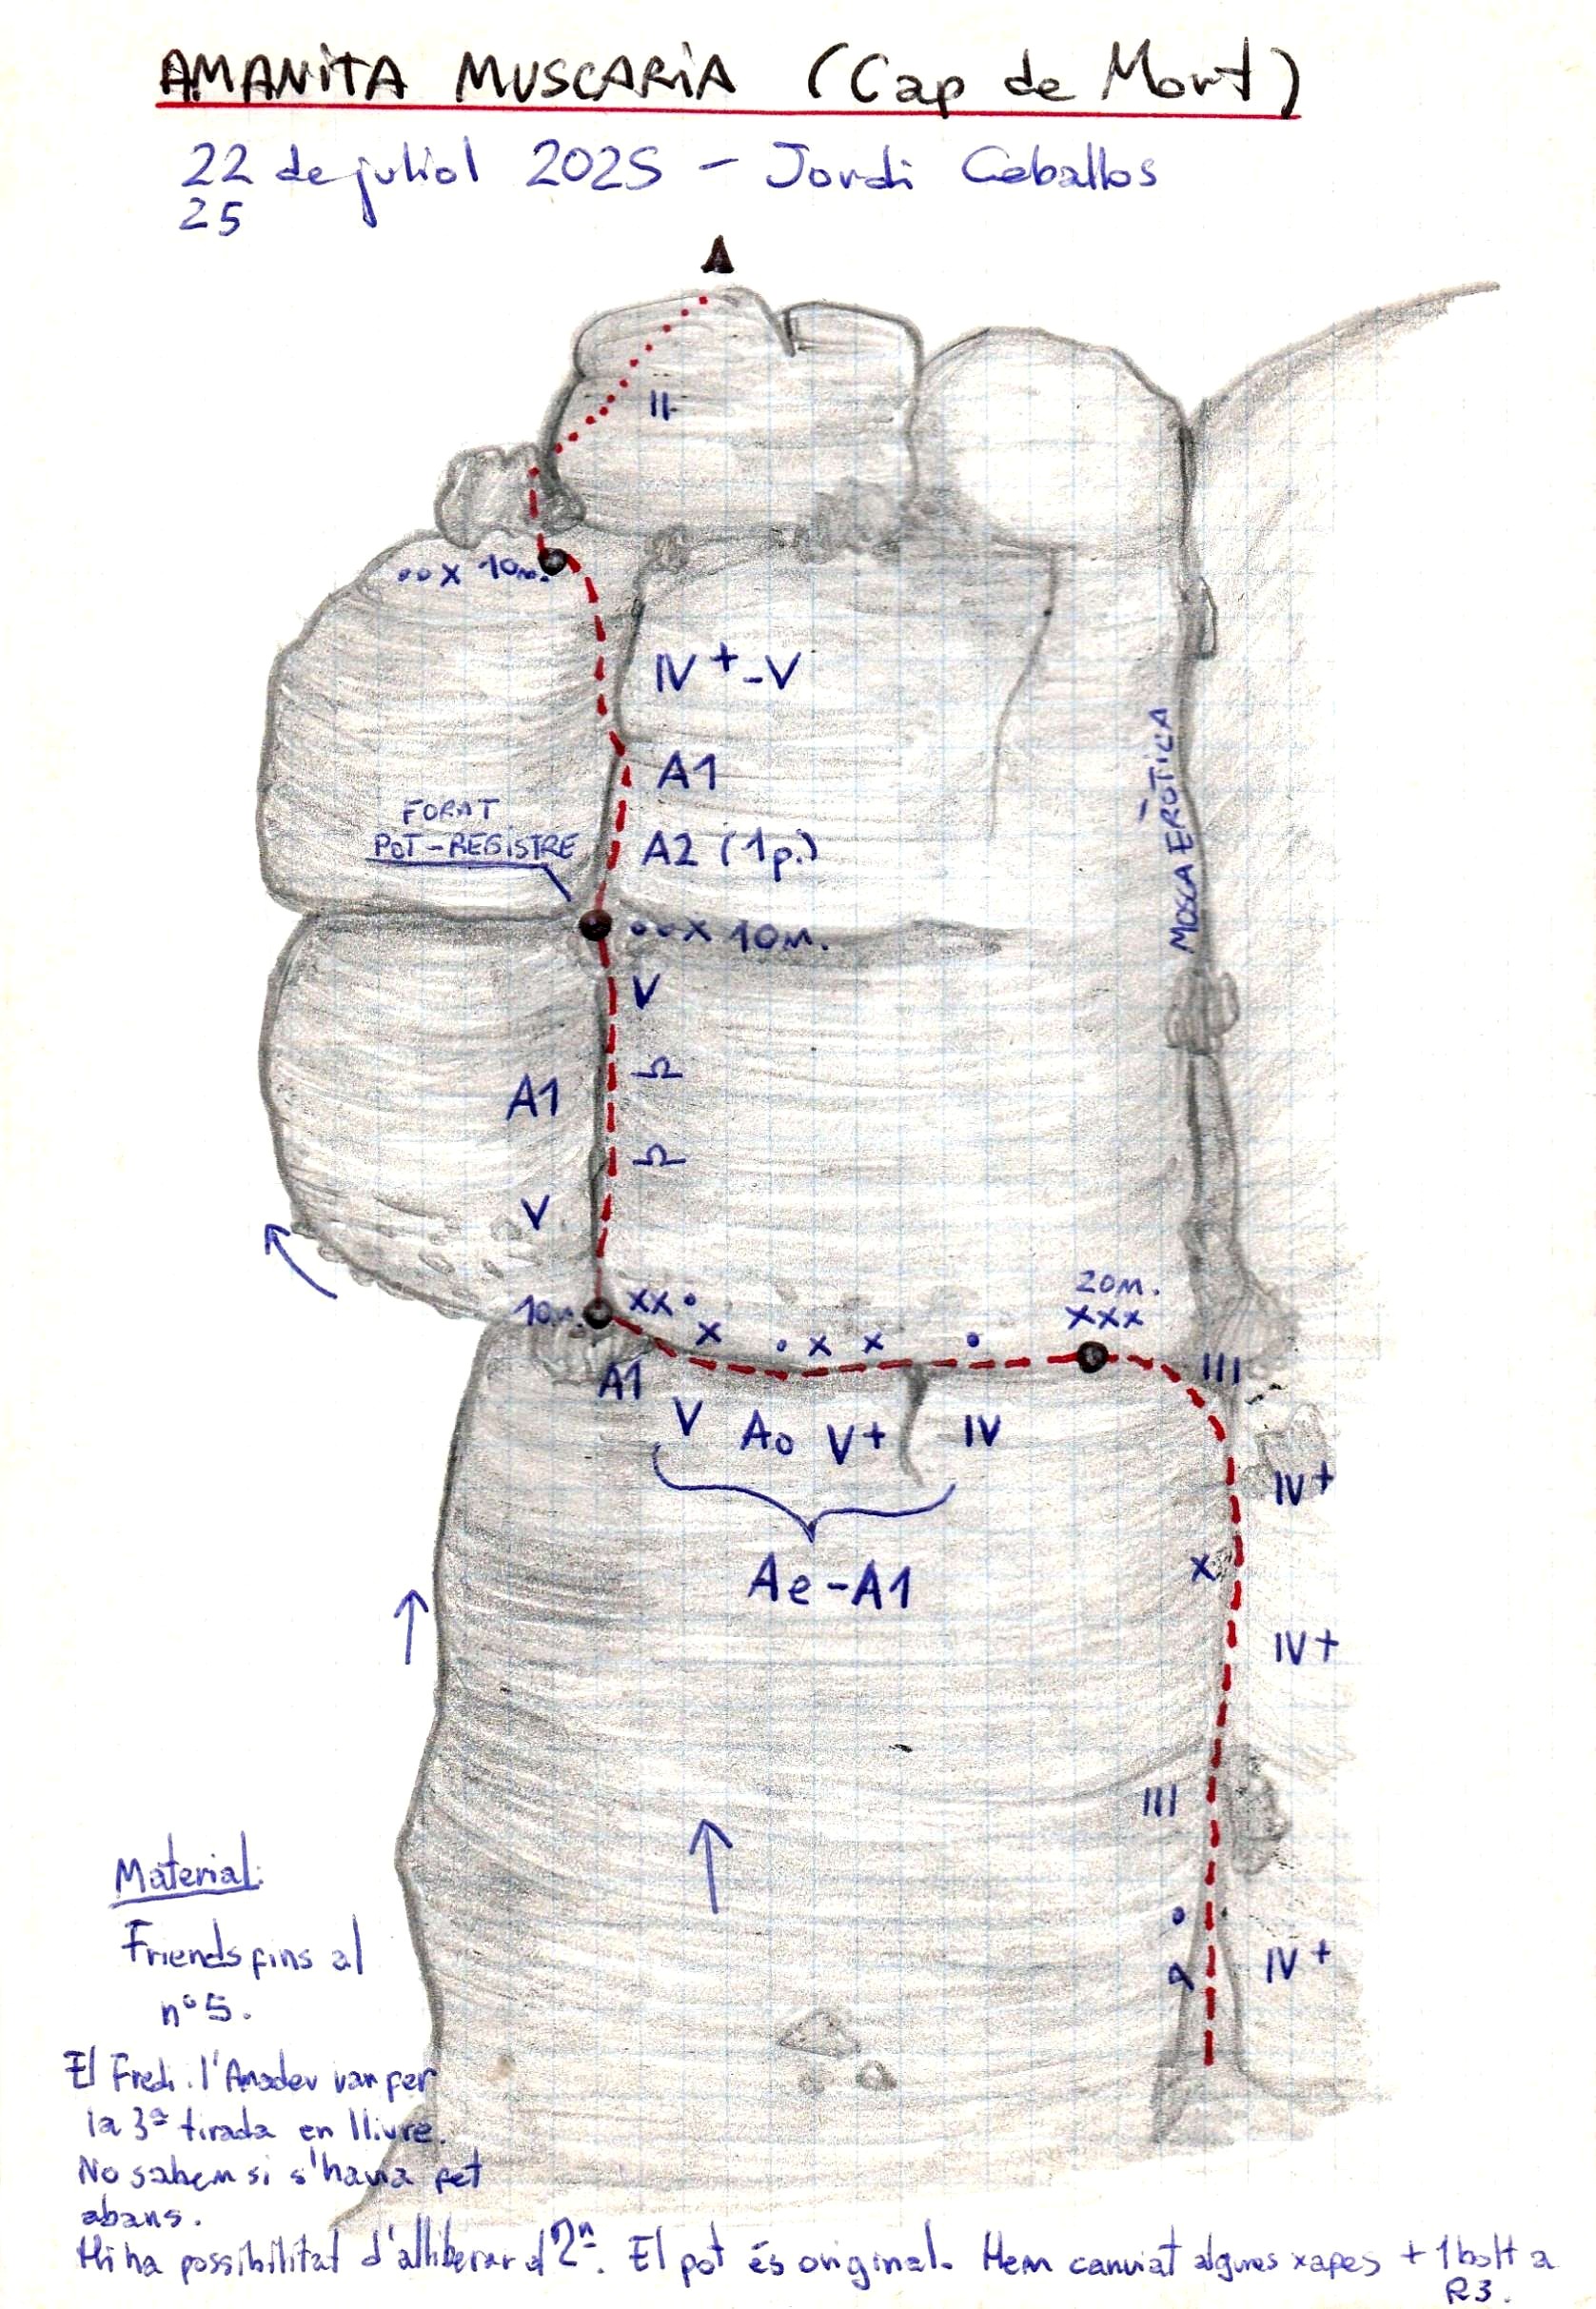 AMANITA MUSCARIA (Cap de Mort)
22 de juliol 2025 - Jordi Ceballos
25
II
••x 10m.
IV+-V
A1
FORAT
POT-REGISTRE
A2 (1p.)
MOSCA ERÒTICA
••x 10m.
V
A1
V
20m.
xxx
10m. xx•
x • x x •
III
A1
V A0 V+ IV
IV+
Ae-A1
x
IV+
III
IV+
Material:
Friends fins al
nº5.
El Fredi i l'Amadeu van fer
la 3ª tirada en lliure.
No sabem si s'havia fet
abans.
Hi ha possibilitat d'alliberar 2ª. El pot és original. Hem canviat algunes xapes + 1 bolt a
R3.